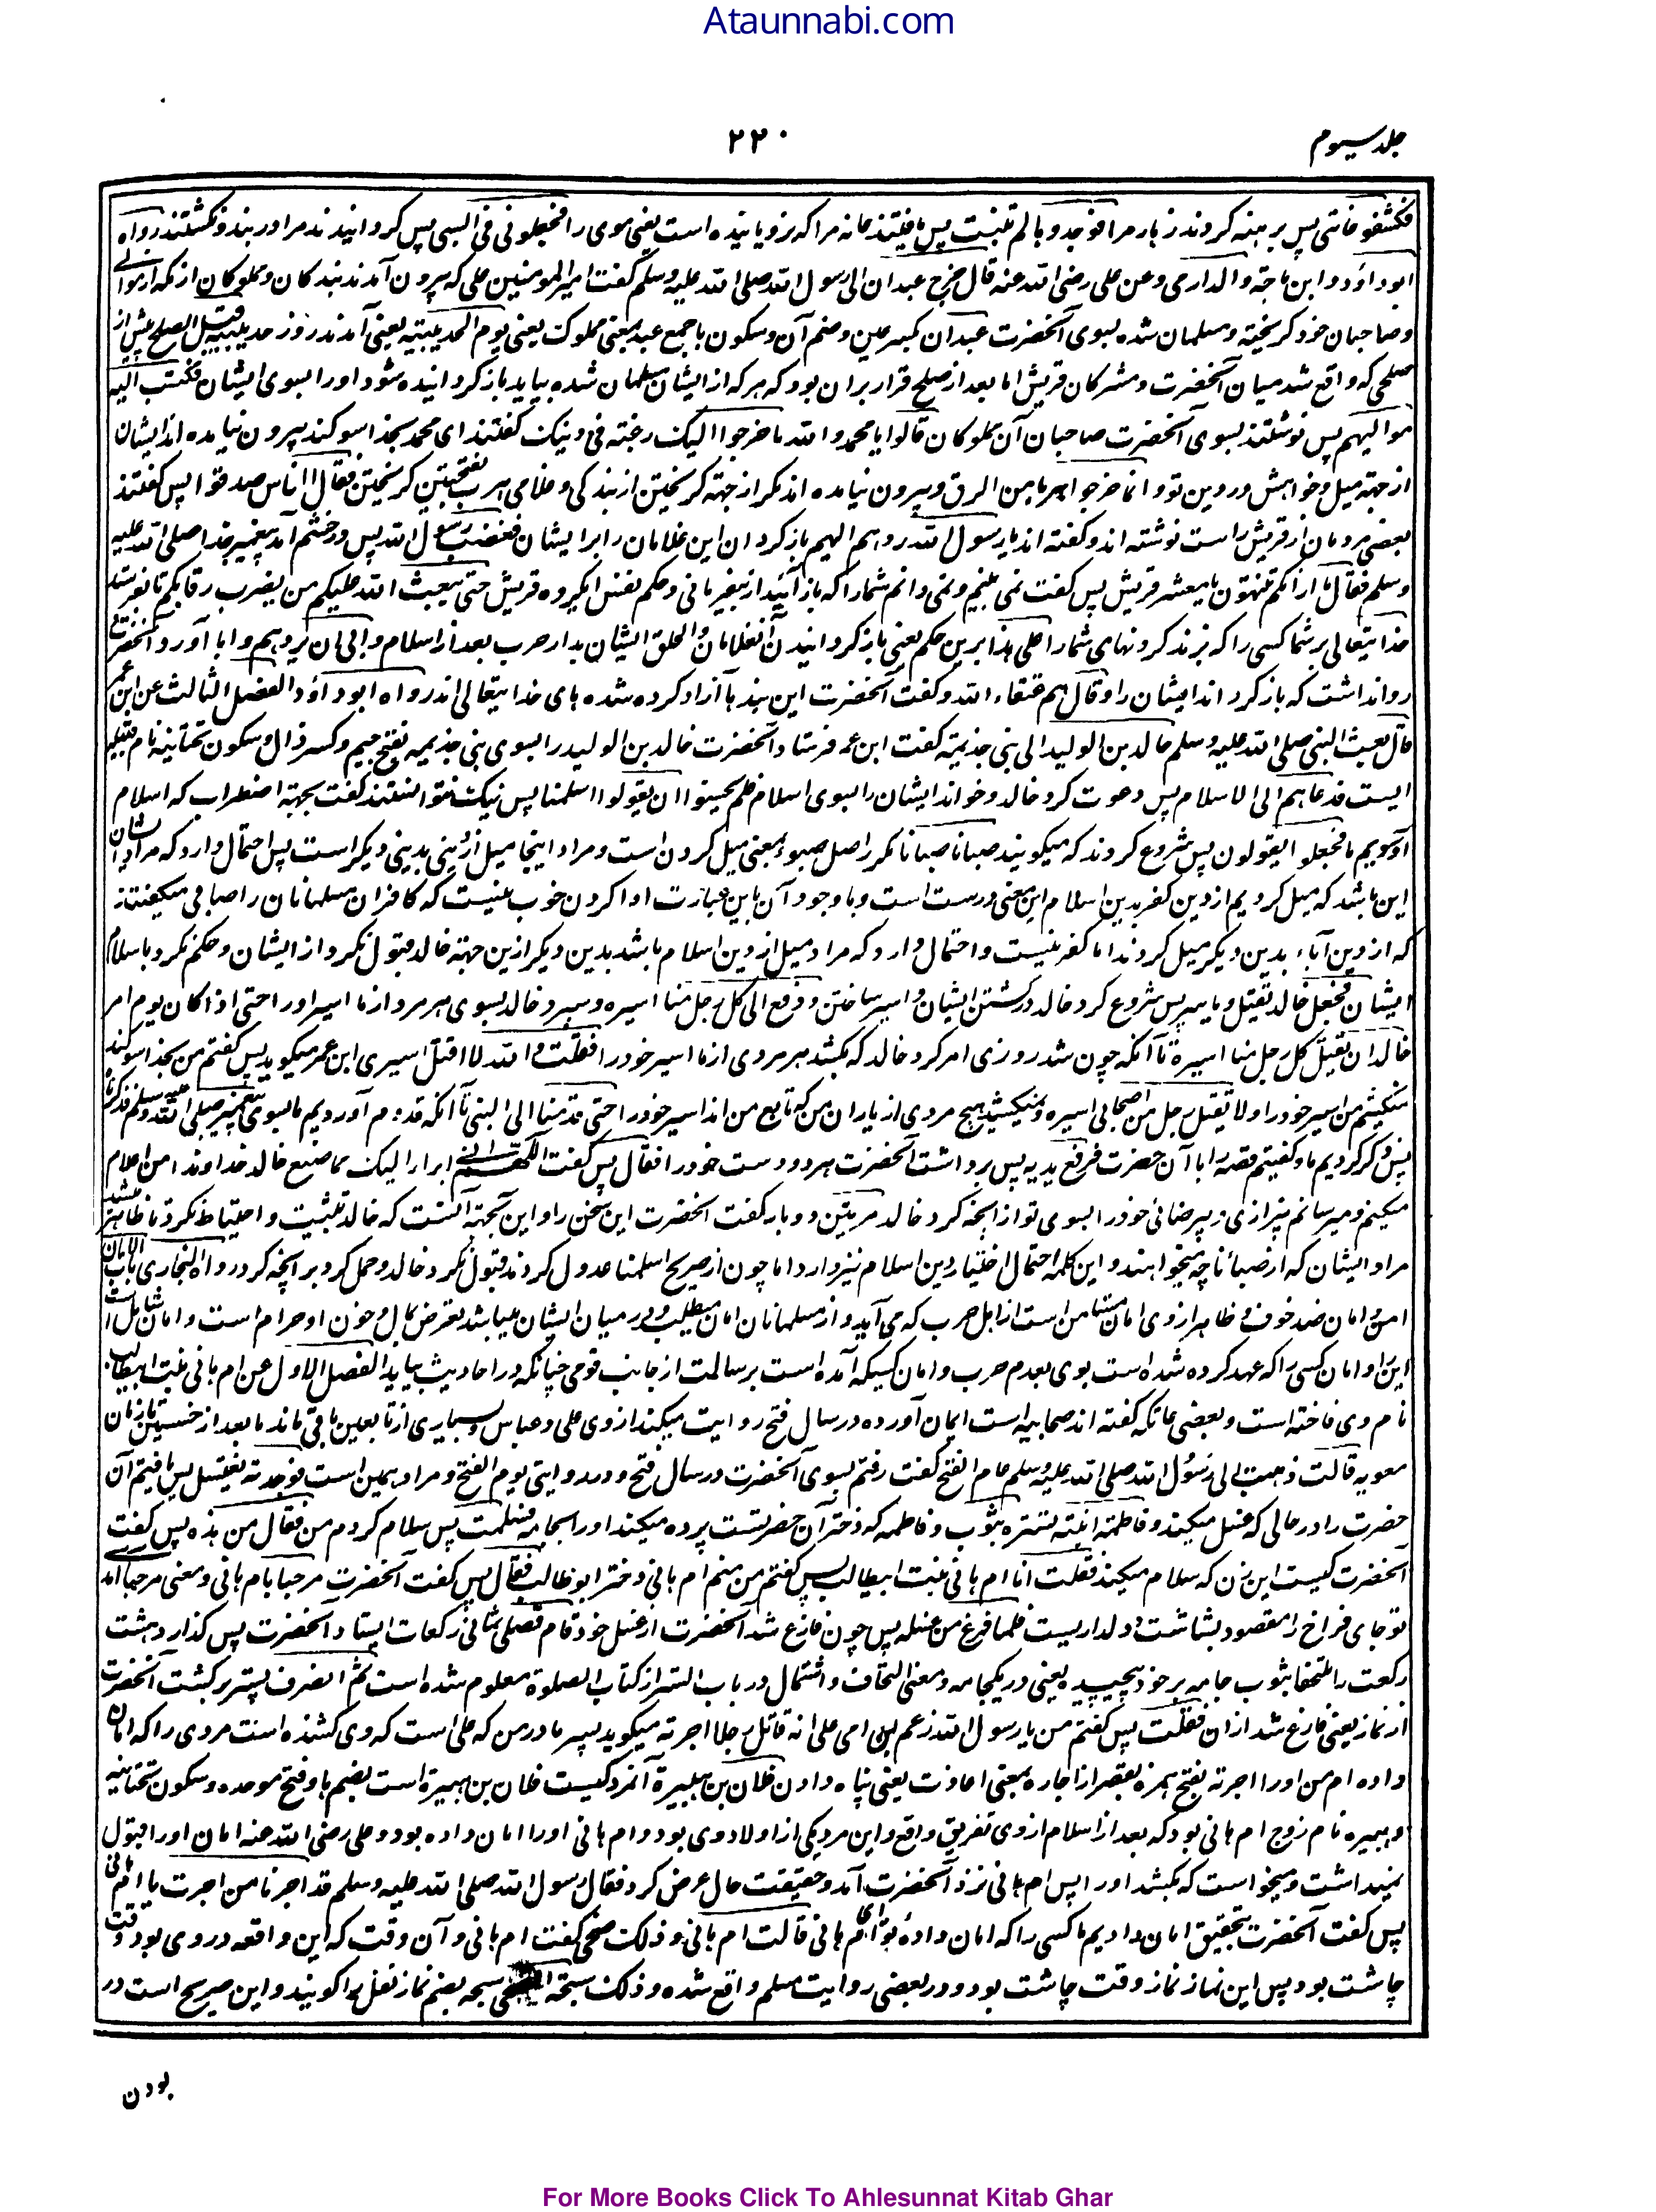 Ataunnabi.com
جلد سیوم
۲۲۰
فکشفوا عانتی پس برهنه کردند زهار مرا فوجدوها لم تنبت پس یافتند عانه مرا که نرویانیده است یعنی موی را فجعلونی فی السبی پس گردانیدند مرا در بند و نکشتند رواه
ابو داؤد و ابن ماجة والدارمی وعن علی رضی الله عنه قال خرج عبدان الی رسول الله صلی الله علیه وسلم گفت امیر المومنین علی که بیرون آمدند بندگان و مملوکان از مکه از موالی
وصاحبان خود گریخته و مسلمان شده بسوی آنحضرت عبدان بکسر عین و ضم آن و سکون با جمع عبد بمعنی مملوک یعنی یوم الحدیبیة یعنی آمدند روز حدیبیه قبل الصلح پیش از
صلحی که واقع شد میان آنحضرت و مشرکان قریش اما بعد از صلح قرار بران بود که هر که از ایشان مسلمان شده بیاید باز گردانیده شود او را بسوی ایشان فکتب الیه
موالیهم پس نوشتند بسوی آنحضرت صاحبان آن مملوکان قالوا یا محمد والله ما خرجوا الیک رغبة فی دینک گفتند ای محمد بخدا سوگند بیرون نیامده اند ایشان
از جهة میل و خواهش در دین تو وانما خرجوا هربا من الرق و بیرون نیامده اند مگر از جهة گریختن از بندگی و غلامی هرب بفتحتین گریختن فقال ناس صدقوا پس گفتند
بعضی مردمان از قریش راست نوشته اند و گفته اند یا رسول الله ردهم الیهم باز گردان این غلامان را بر ایشان فغضب رسول الله پس در خشم آمد پیغمبر خدا صلی الله علیه
وسلم فقال ما اراکم تنتهون یا معشر قریش پس گفت نمی بینم و نمی دانم شما را که باز آئید از بیفرمانی و حکم نفس ای گروه قریش حتی یبعث الله علیکم من یضرب رقابکم تا بفرستد
خدایتعالی بر شما کسی را که بزند گردنهای شما را علی هذا برین حکم یعنی باز گردانیدن آنغلامان و الحاق ایشان بدار حرب بعد از اسلام وابی ان یردهم وابا آورد آنحضرت یعنی
روا نداشت که باز گرداند ایشان را وقال هم عتقاء الله و گفت آنحضرت این بندها آزاد کرده شده های خدایتعالی اند رواه ابو داؤد الفصل الثالث عن ابن عمر
قال بعث النبی صلی الله علیه وسلم خالد بن الولید الی بنی جذیمة گفت ابن عمر فرستاد آنحضرت خالد بن الولید را بسوی بنی جذیمه بفتح جیم و کسر ذال و سکون تحتانیه نام قبیله
ایست فدعاهم الی الاسلام پس دعوت کرد خالد و خواند ایشان را بسوی اسلام فلم یحسنوا ان یقولوا اسلمنا پس نیک نتوانستند گفت بجهة اضطراب که اسلام
آوردیم ما فجعلوا یقولون پس شروع کردند که میگویند صبانا صبانا مکرر اصل صبوء بمعنی میل کردن است و مراد اینجا میل از دینی بدینی دیگر است پس احتمال دارد که مراد ایشان
این باشد که میل کردیم از دین کفر بدین اسلام این معنی درست است و با وجود آن باین عبارت ادا کردن خوب نیست که کافران مسلمانان را صابی میگفتند
که از دین آباء بدین دیگر میل کردند اما کفر نیست و احتمال دارد که مراد میل از دین اسلام باشد بدین دیگر ازین جهة خالد قبول نکرد از ایشان و حکم نکرد باسلام
ایشان فجعل خالد یقتل ویاسر پس شروع کرد خالد در کشتن ایشان و اسیر ساختن ودفع الی کل رجل منا اسیره و سپرد خالد بسوی هر مرد از ما اسیر او را حتی اذا کان یوم امر
خالد ان یقتل کل رجل منا اسیره تا آنکه چون شد روزی امر کرد خالد که بکشد هر مردی از ما اسیر خود را فقلت والله لا اقتل اسیری ابن عمر میگوید پس گفتم من بخدا سوگند
نمیکشم من اسیر خود را ولا یقتل رجل من اصحابی اسیره و نمیکشد هیچ مردی از یاران من که تابع من اند اسیر خود را حتی قدمنا الی النبی تا آنکه قدوم آوردیم ما بسوی پیغمبر صلی الله علیه وسلم فذکرناه
پس ذکر کردیم ما و گفتیم قصه را با آن حضرت فرفع یدیه پس برداشت آنحضرت هر دو دست خود را فقال پس گفت اللهم انی ابرأ الیک مما صنع خالد خداوندا من اعلام
میکنم و میرسانم بیزاری و بیرضائی خود را بسوی تو از آنچه کرد خالد مرتین دو بار گفت آنحضرت این سخن را و این بجهة آنست که خالد تثبت و احتیاط نکرد تا ظاهر شد
مراد ایشان که از صبأنا چه میخواهند و این کلمه احتمال اختیار دین اسلام نیز دارد اما چون از صریح اسلمنا عدول کردند قبول نکرد خالد و حمل کرد بر آنچه کرد رواه البخاری باب الامان
امن و امان ضد خوف و ظاهر از وی امان مستامن است از اهل حرب که می آید و از مسلمانان امان میطلبد و در میان ایشان میباشد تعرض بمال و خون او حرام است و امان شامل است
این را و امان کسی را که عهد کرده شده است بوی بعدم حرب و امان کسیکه آمده است برسالت از جانب قومی چنانکه در احادیث بیاید الفصل الاول عن ام هانی بنت ابیطالب
نام وی فاخته است و بعضی عاتکه گفته اند صحابیه است ایمان آورده در سال فتح روایت میکند از وی علی و عباس و بسیاری از تابعین باقی ماند ما بعد از خمسین تا زمان
معویه قالت ذهبت الی رسول الله صلی الله علیه وسلم عام الفتح گفت رفتم بسوی آنحضرت در سال فتح و در روایتی یوم الفتح و مراد همین است فوجدته یغتسل پس یافتم آن
حضرت را در حالی که غسل میکند وفاطمة ابنته تستره بثوب و فاطمه که دختر آن حضرتست پرده میکند او را بجامه فسلمت پس سلام کردم من فقال من هذه پس گفت
آنحضرت کیست این زن که سلام میکند فقلت انا ام هانی بنت ابیطالب پس گفتم من منم ام هانی دختر ابو طالب فقال پس گفت آنحضرت مرحبا بام هانی و معنی مرحبا آمدی
تو جای فراخ را مقصود بشاشت و دلداریست فلما فرغ من غسله پس چون فارغ شد آنحضرت از غسل خود قام فصلی ثمانی رکعات ایستاد آنحضرت پس گذارد هشت
رکعت را ملتحفا بثوب جامه بر خود پیچیده یعنی در یکجامه و معنی التحاف و اشتمال در باب الستر از کتاب الصلوة معلوم شده است ثم انصرف پستر برگشت آنحضرت
از نماز یعنی فارغ شد ازان فقلت پس گفتم من یا رسول الله زعم ابن امی علی انه قاتل رجلا اجرته میگوید پسر مادر من که علی است که وی کشنده است مردی را که امان
داده ام من او را اجرته بفتح همزه بقصر از اجاره بمعنی اعاذت یعنی پناه دادن فلان بن هبیرة آنمرد کیست فلان بن هبیرة است بضم ها و فتح موحده و سکون تحتانیه
و هبیره نام زوج ام هانی بود که بعد از اسلام از وی تفریق واقع و این مرد یکی از اولاد وی بود و ام هانی او را امان داده بود و علی رضی الله عنه امان او را قبول
نمیداشت و میخواست که بکشد او را پس ام هانی نزد آنحضرت آمد و حقیقت حال عرض کرد فقال رسول الله صلی الله علیه وسلم قد اجرنا من اجرت یا ام هانی
پس گفت آنحضرت بتحقیق امان دادیم ما کسی را که امان دادهٔ تو ای ام هانی قالت ام هانی وذلک ضحی گفت ام هانی و آن وقت که این واقعه در وی بود وقت
چاشت بود پس این نماز نماز وقت چاشت بود و در بعضی روایت مسلم واقع شده وذلک سبحة الضحی سبحه بضم نماز نفل را گویند و این صریح است در
بودن
For More Books Click To Ahlesunnat Kitab Ghar